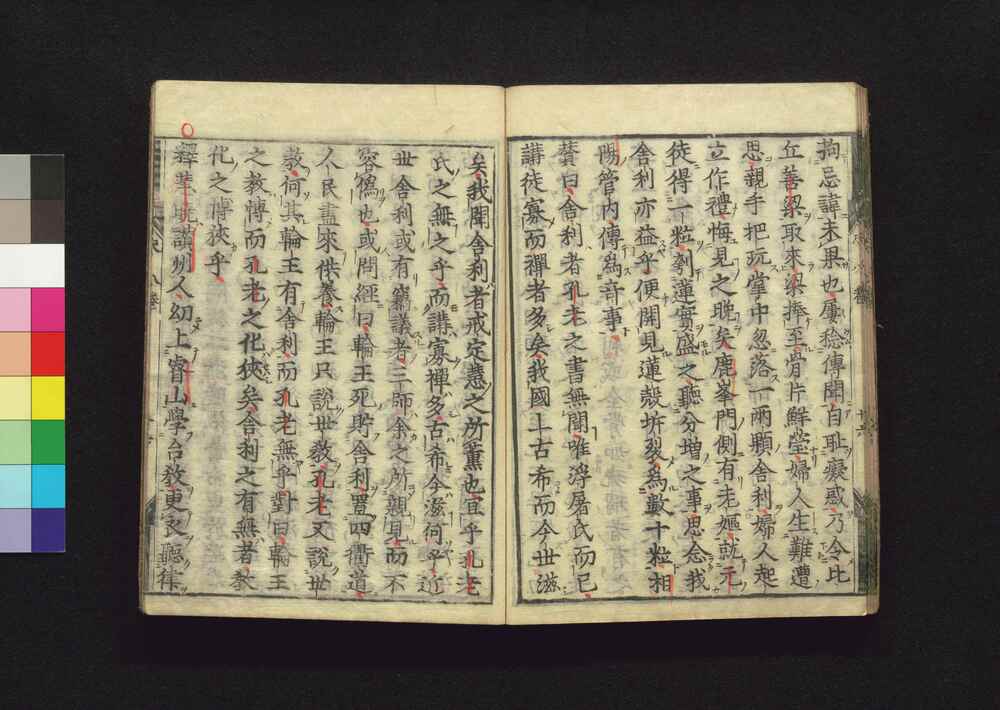 拘忌諱未果也屢稔傳聞自耻癡惑乃令比
丘善梁取來梁捧至骨片鮮瑩婦人生難遭
思親手把玩掌中忽落一兩顆舍利婦人起
立作禮悔見之晚矣鹿峯門側有老嫗就元
徒得一粒剜蓮實盛之聽分増之事思念我
舍利亦益乎便開見蓮殼坼裂爲數十粒相
陽管内傳爲奇事
贊曰舍利者孔老之書無聞唯浮屠氏而已
講徒寡而禪者多矣我國上古希而今世滋
矣我聞舍利者戒定慧之所薫也宜乎孔老
氏之無之乎而講寡禪多古希今滋何乎近
世舍利或有竊議者三師余之所親見而不
容僞也或問經曰輪王死貯舍利置四衢道
人民盡來供養輪王只說世教孔老又說世
教何其輪王有舍利而孔老無乎對曰輪王
之教博而孔老之化狹矣舍利之有無者教
化之博狹乎
釋華
人幼上睿山學台教更衣聽律